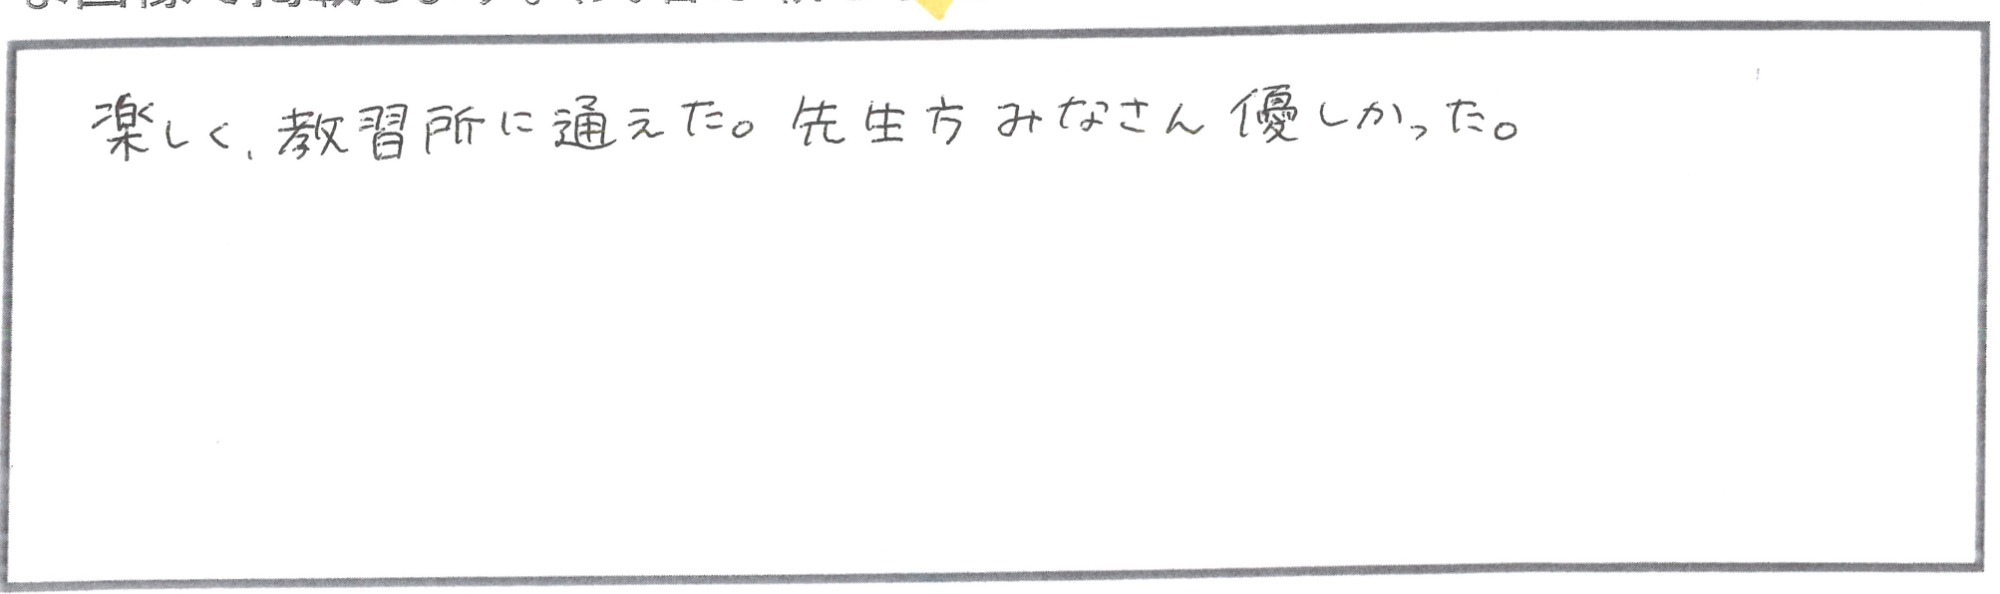 楽しく、教習所に通えた。先生方みなさん優しかった。